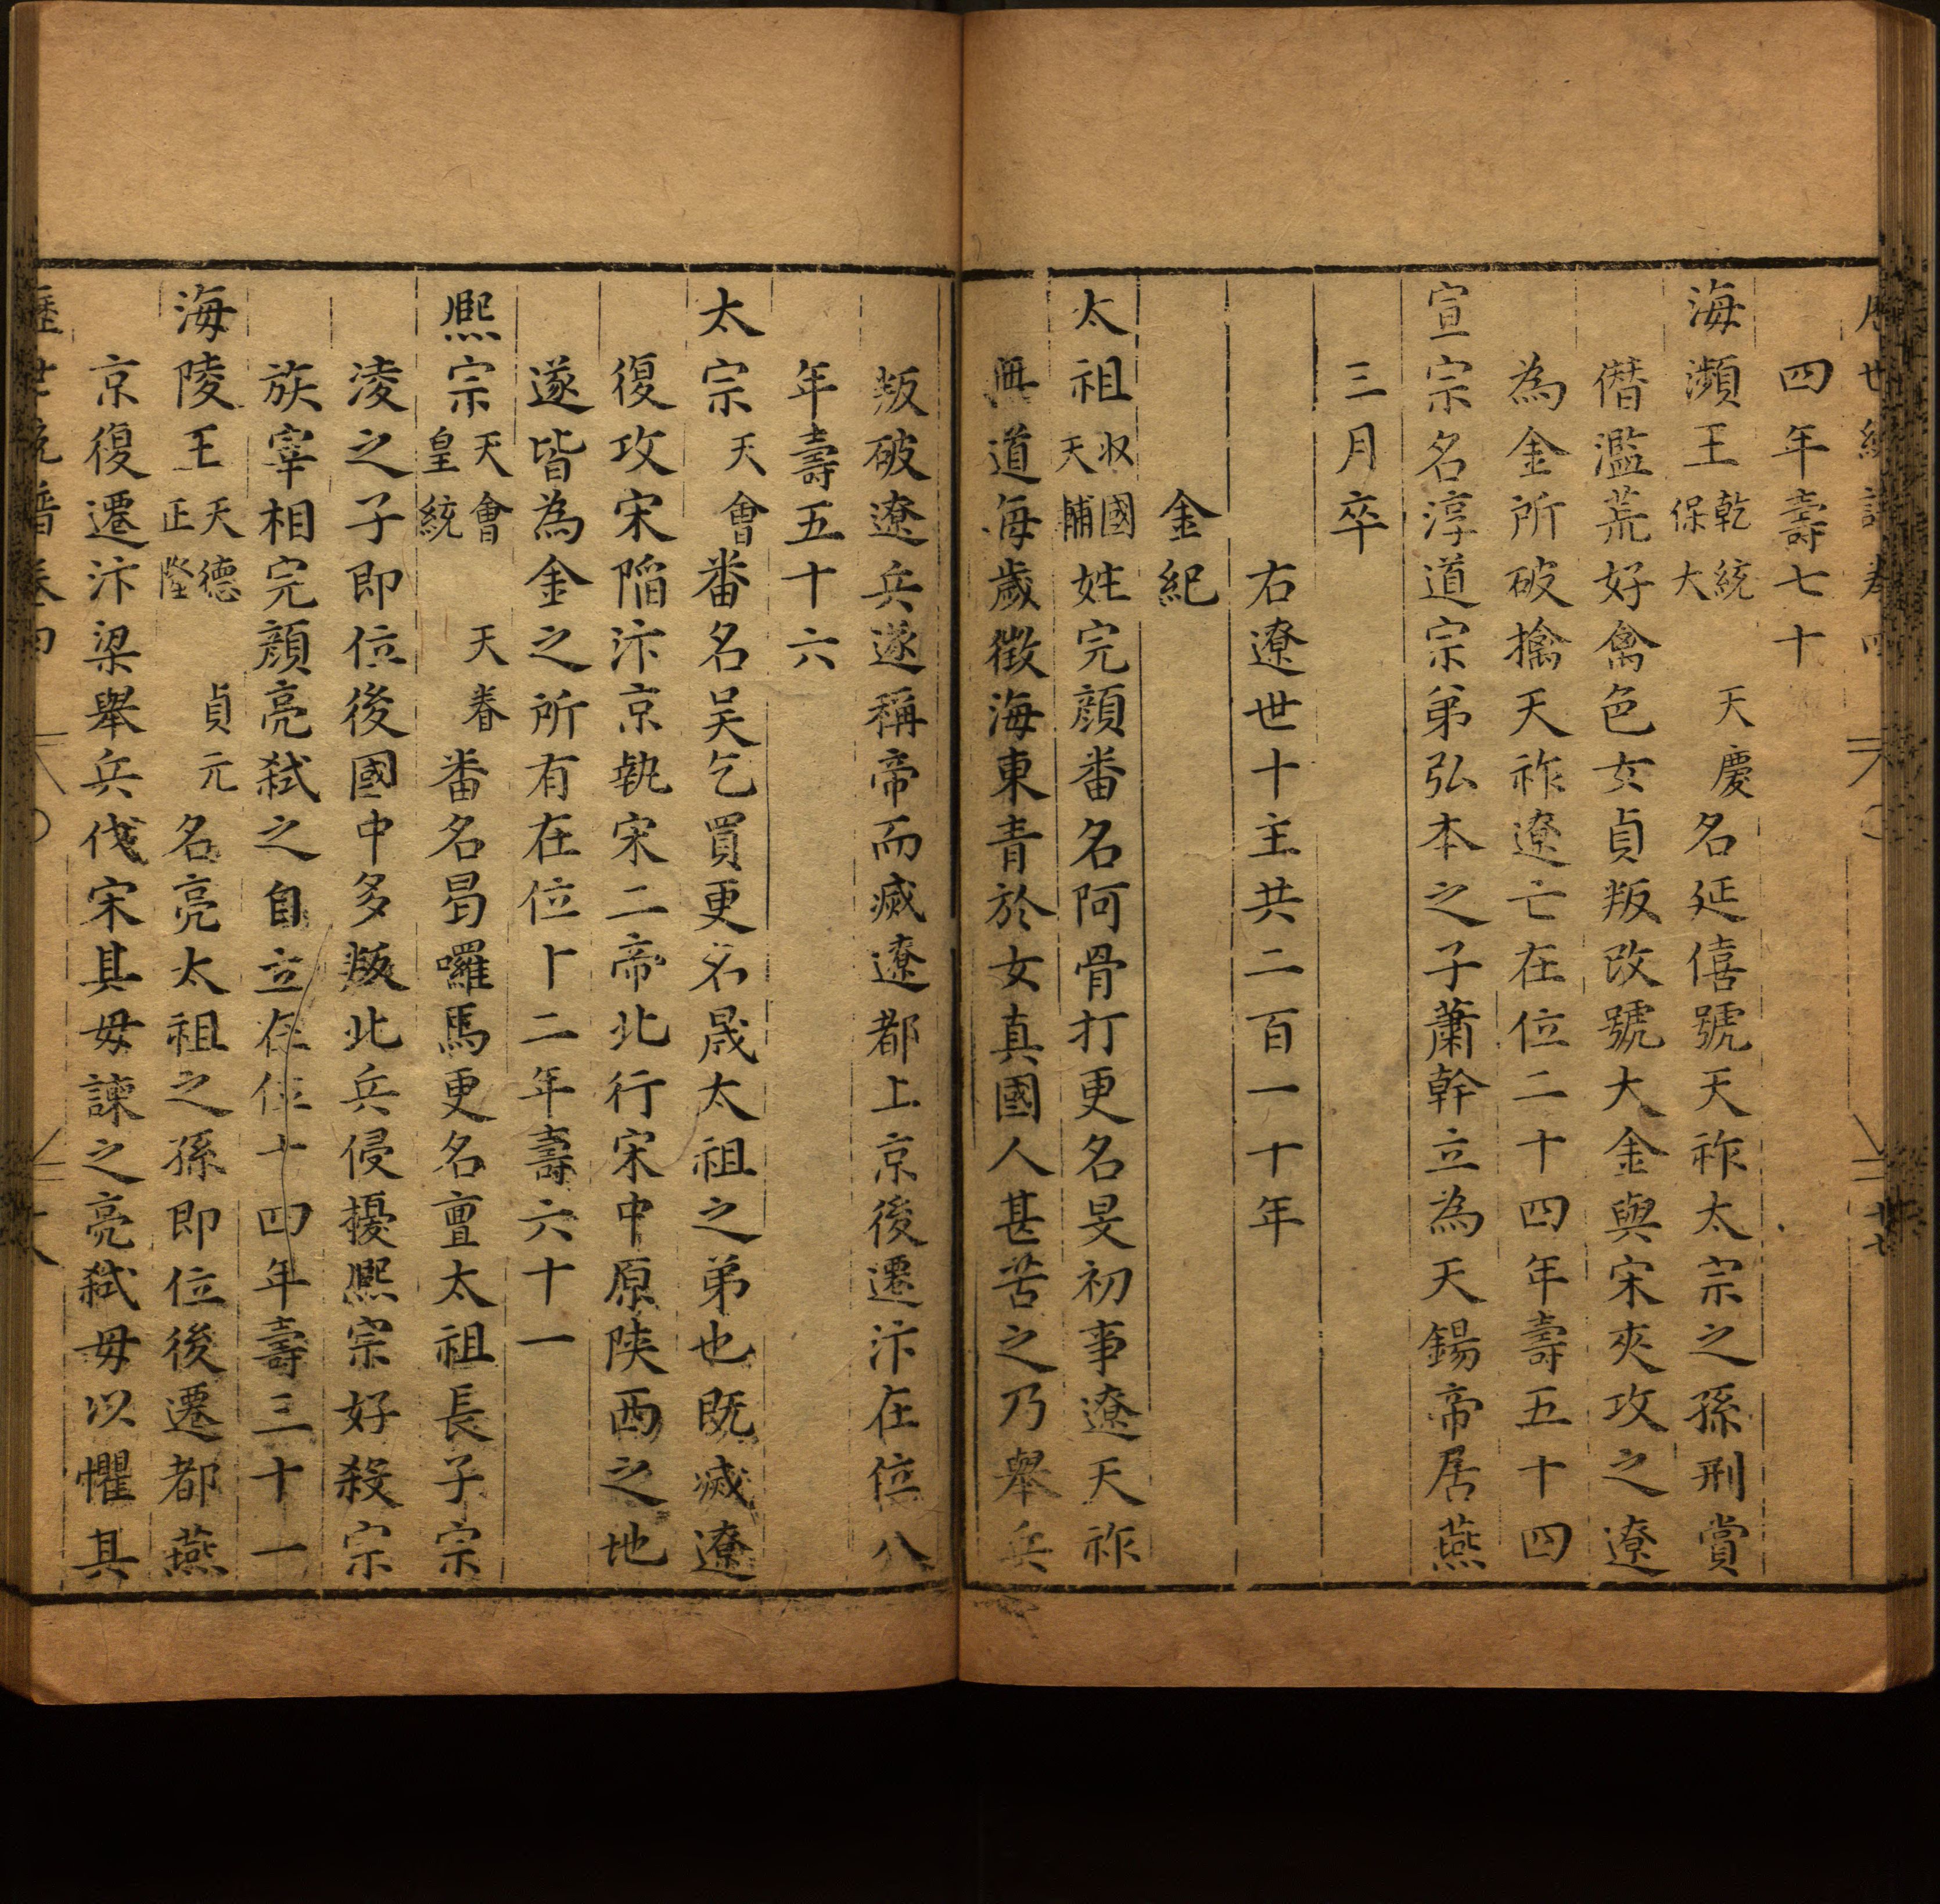 四年壽七十
海瀕王乾統 天慶保大名延僖號天祚太宗之孫刑賞
僭濫荒好禽色女貞叛改號大金與宋夾攻之遼
為金所破擒天祚遼亡在位二十四年壽五十四
宣宗名淳道宗弟弘本之子蕭幹立為天錫帝居燕
三月卒
右遼世十主共二百一十年
金紀
太祖収國天輔姓完顔番名阿骨打更名旻初事遼天祚
無道每歲徵海東青於女真國人甚苦之乃舉兵
叛破遼兵遂稱帝而滅遼都上京後遷汴在位八
年壽五十六
太宗天會番名吴乞買更名晟太祖之弟也既滅遼
復攻宋陷汴京執宋二帝北行宋中原陜西之地
遂皆為金之所有在位十二年壽六十一
熙宗天會 天眷皇統番名曷囉馬更名亶太祖長子宗
凌之子即位後國中多叛北兵侵擾熙宗好殺宗
族宰相完顔亮弒之自立在位十四年壽三十一
海陵王天德 貞元正隆名亮太祖之孫即位後遷都燕
京復遷汴梁舉兵伐宋其毋諫之亮弒毋以懼其
歷世統譜卷四